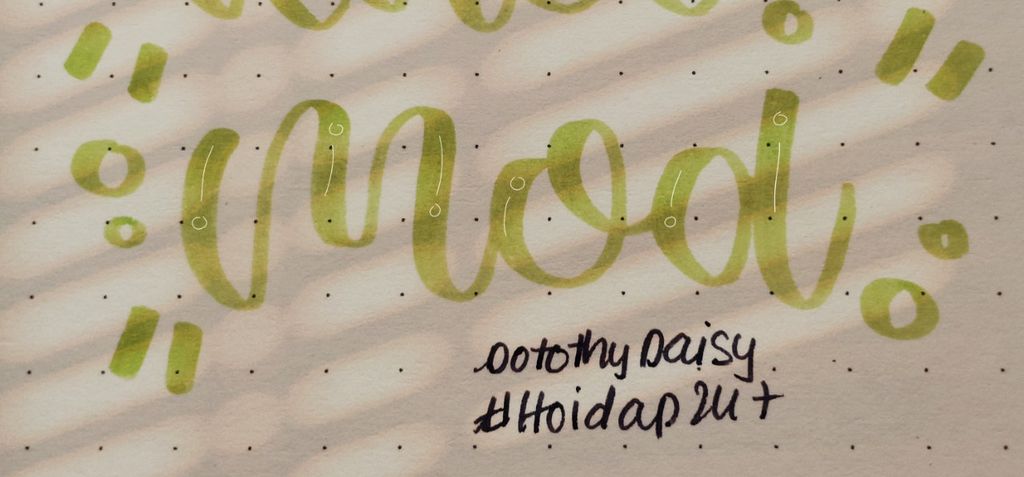 Mod
DotothyDaisy
#Hoidap24+